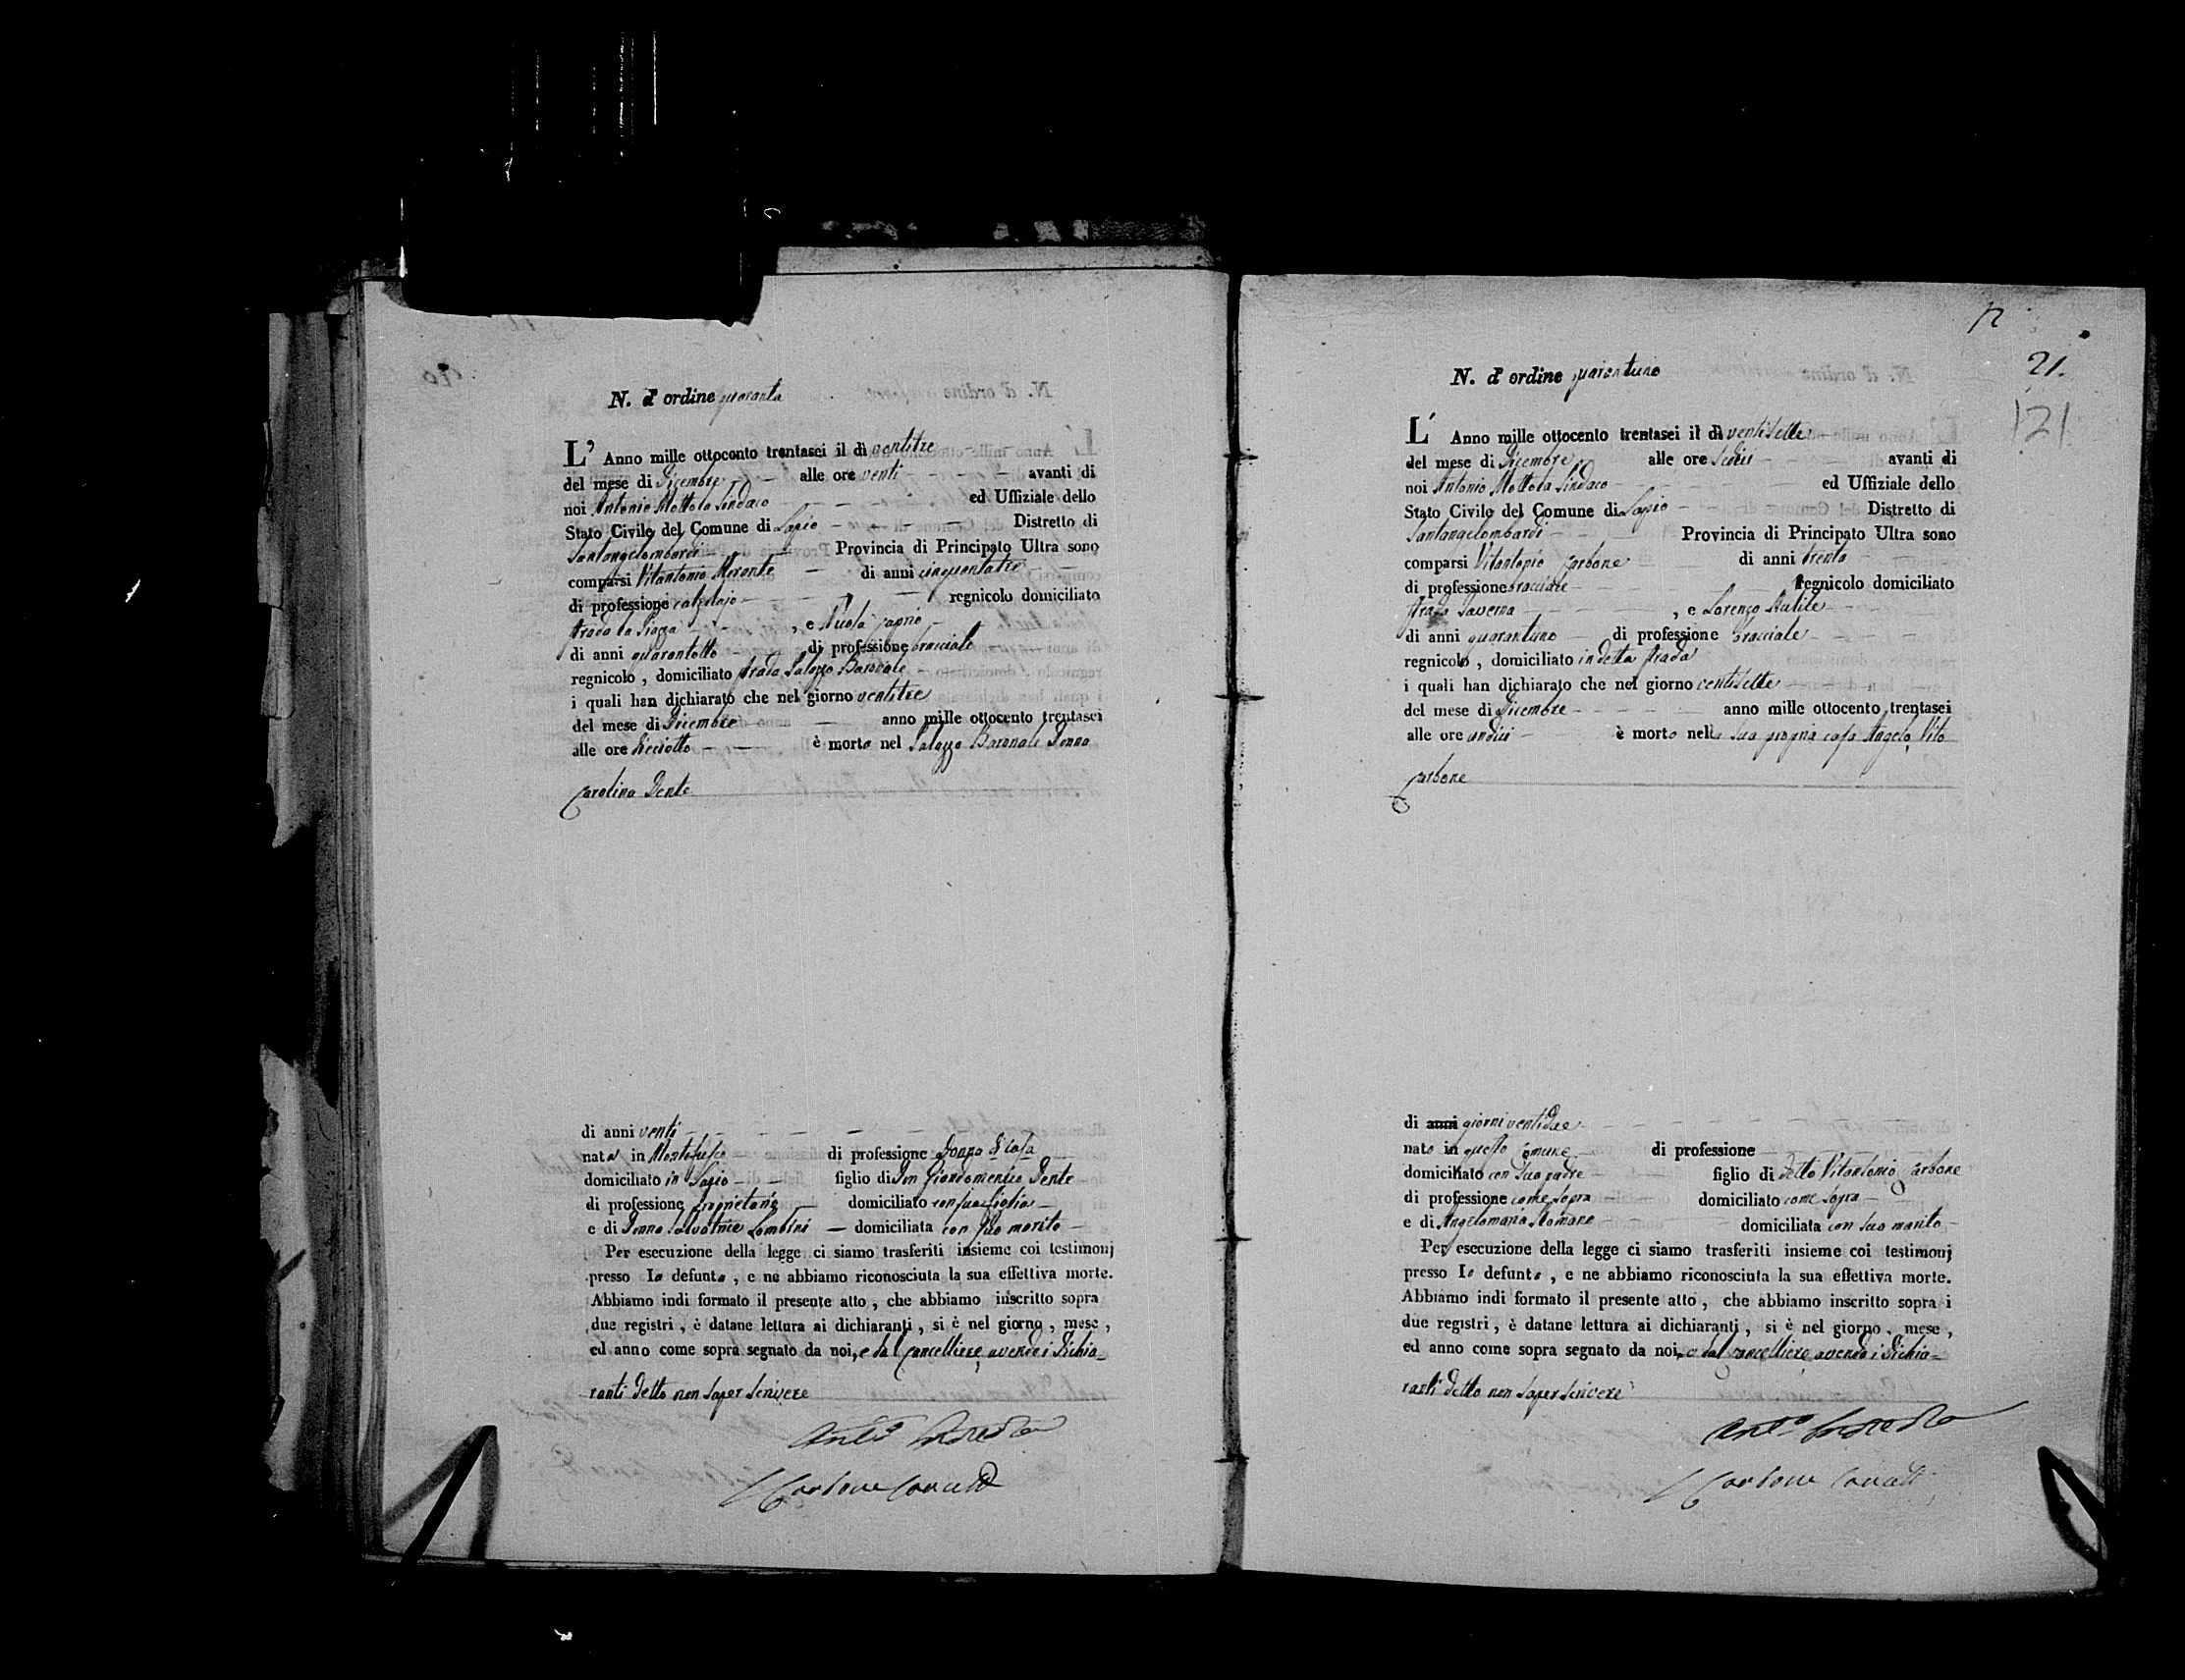 N. d'ordine quaranta
L' Anno mille ottocento trentasei il dì ventitre
del mese di Dicembre alle ore venti avanti di
noi Antonio Mottola Sindaco ed Uffiziale dello
Stato Civile del Comune di Lapio Distretto di
Santangelombardi Provincia di Principato Ultra sono
comparsi Vitantonio di anni cinquantatre
di professione calzolajo regnicolo domiciliato
strada la Piazza , e Nicola Caprio
di anni quarantotto di professione bracciale
regnicolo , domiciliato strada Palazzo Baronale
i quali han dichiarato che nel giorno ventitre
del mese di Dicembre anno mille ottocento trentasei
alle ore dieciotto è morta nel Palazzo Baronale Donna
Carolina Dente
di anni venti
nata in Montefusco di professione donna di casa
domiciliato in Lapio figlio di Don Giandomenico Dente
di professione proprietario domiciliato con sua figlia
e di Donna Lombini domiciliata con suo marito
Per esecuzione della legge ci siamo trasferiti insieme coi testimonj
presso la defunta , e ne abbiamo riconosciuta la sua effettiva morte.
Abbiamo indi formato il presente atto , che abbiamo inscritto sopra
due registri , è datane lettura ai dichiaranti , si è nel giorno , mese ,
ed anno come sopra segnato da noi, e dal Cancelliere avendo i dichia-
ranti detto non saper scrivere
Ant.o Mottola
Carbone Canc
21.
121
N. d'ordine quarantuno
L' Anno mille ottocento trentasei il dì ventisette
del mese di Dicembre alle ore sedici avanti di
noi Antonio Mottola Sindaco ed Uffiziale dello
Stato Civile del Comune di Lapio Distretto di
Santangelombardi Provincia di Principato Ultra sono
comparsi Vitantonio Carbone di anni trenta
di professione bracciale regnicolo domiciliato
strada Taverna , e Lorenzo
di anni quarantuno di professione bracciale
regnicolo , domiciliato in detta strada
i quali han dichiarato che nel giorno ventisette
del mese di Dicembre anno mille ottocento trentasei
alle ore undici è morto nella sua propria casa Angelo Vito
Carbone
di anni giorni ventidue
nato in questo Comune di professione
domiciliato con suo padre figlio di detto Vitantonio Carbone
di professione come sopra domiciliato come sopra
e di Angelamaria Romano domiciliata con suo marito
Per esecuzione della legge ci siamo trasferiti insieme coi testimonj
presso lo defunto , e ne abbiamo riconosciuta la sua effettiva morte.
Abbiamo indi formato il presente atto , che abbiamo inscritto sopra i
due registri , è datane lettura ai dichiaranti , si è nel giorno , mese ,
ed anno come sopra segnato da noi, e dal Cancelliere avendo i dichia-
ranti detto non saper scrivere
Ant.o Mottola
Carbone Canc